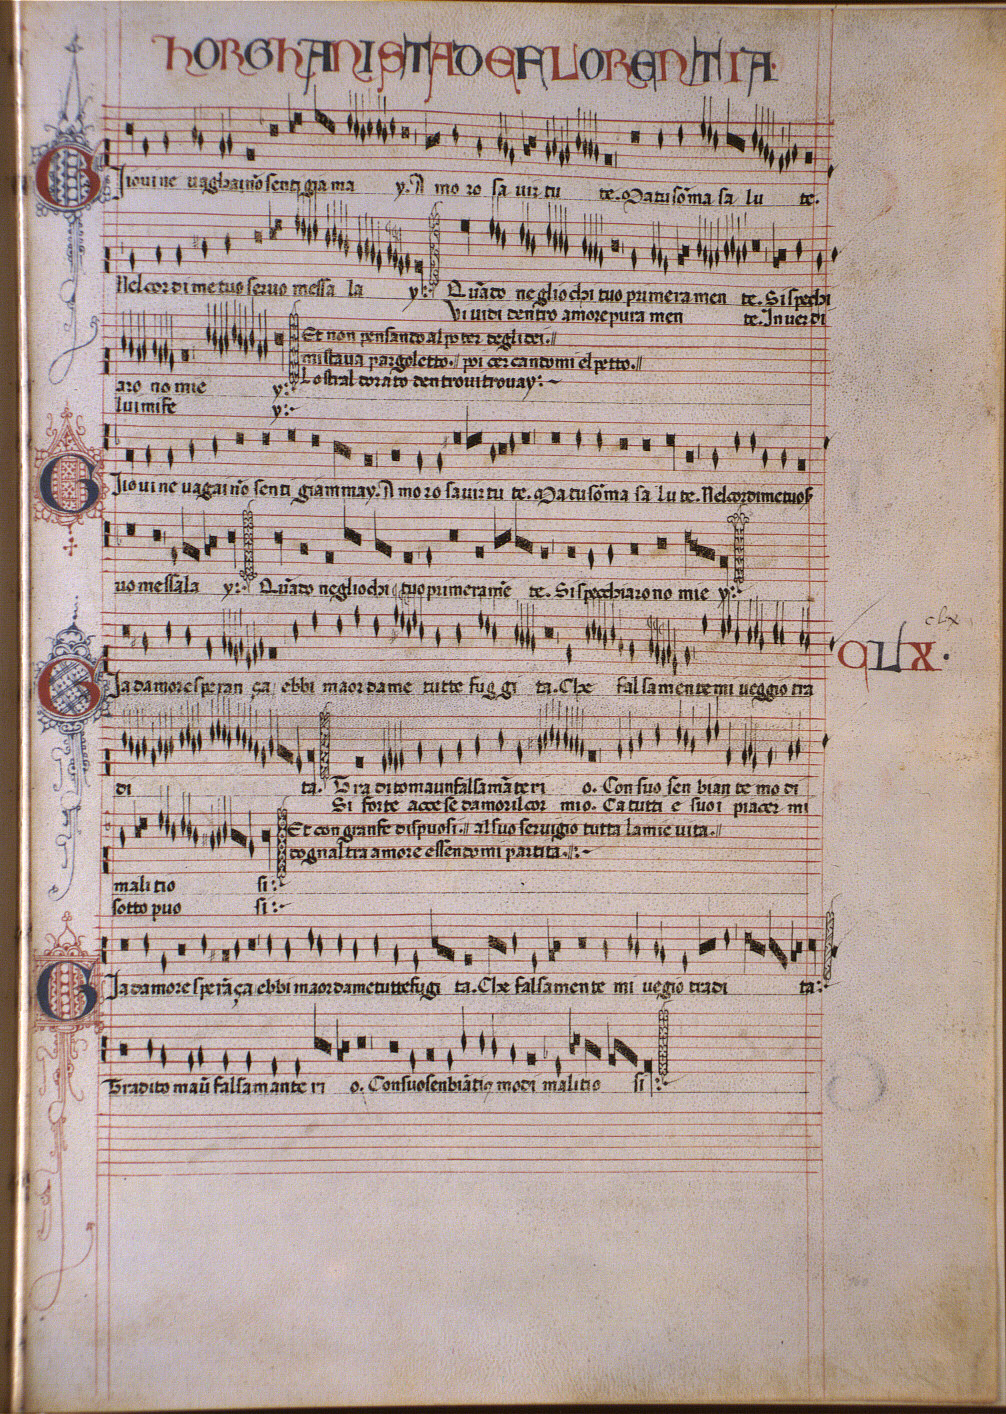 hORGhANISTA DE FLORENTIA.
Giovine vagha i nõ senti gia ma y. A mo ro sa vir tu te. Ma tu sõma sa lu te.
Nel cor di me tuo servo messa la y:
Quãto ne gliochi tuo primera men te. Si spechi
Vi vidi dentro amore pura men te. In ver di
Et non pensando al poter degli dei.
mi stava pargoletto. poi cercandomi el petto.
Lo stral dorato dentrovi trovay:
aro no mie y:
lui mi fe y:
Giovine vaga i nõ senti giammay. A mo ro sa vir tu te. Ma tu sõma sa lu te. Nel cor di me tuo s
vo messa la y: Quãto ne gliochi tuo primeramẽ te. Si spechiaro no mie y:
Gia damore speran ça ebbi maor dame tutte fuggi ta. Che falsamente mi veggio tra
di ta. Tradito maun falsamãte ri o. Con suo sen bian te mo di
Si forte accese damor il cor mio. Ca tutti e suoi piacer mi
Et con gran fe dispuosi. al suo servigio tutta la mie vita.
dognaltra amore essendomi partita.
mali tio si:
sotto puo si:
CLX.
clx
Gia damore sperãça ebbi maor dame tutte fugi ta. Che falsamente mi vegio tradi ta:
Tradito maũ falsamante ri o. Con suo senbiãti modi malitio si: